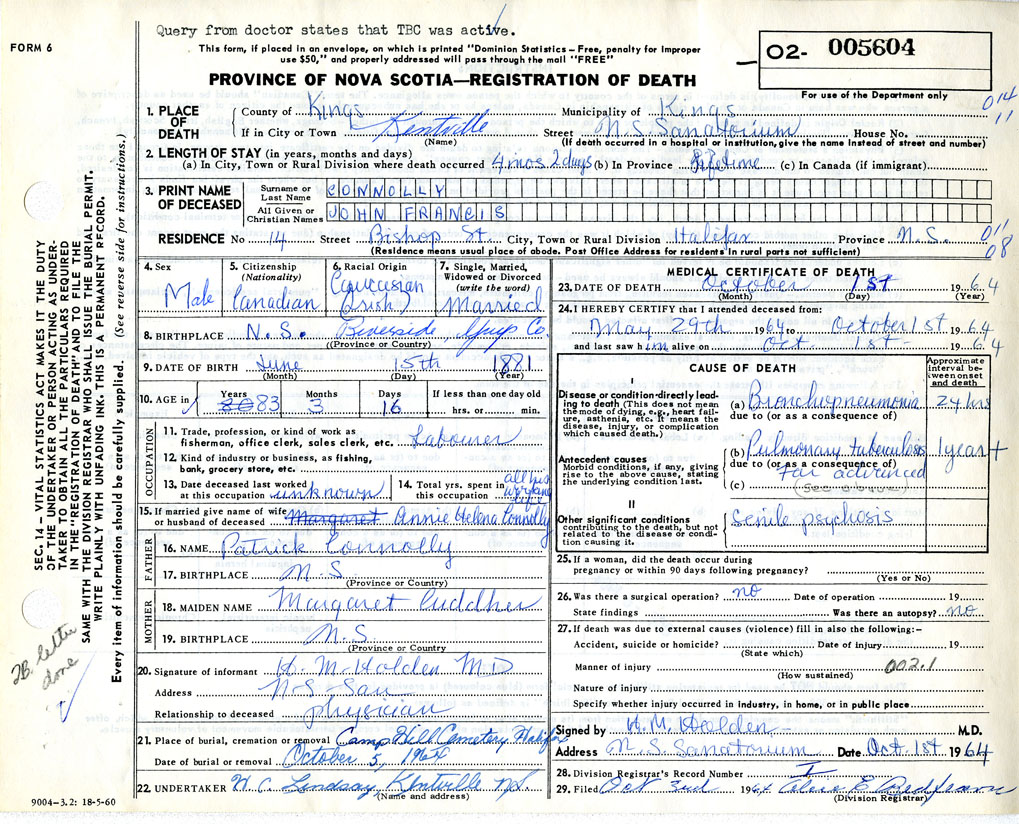 Query from doctor states that TBC was active.
FORM 6
This form, if placed in an envelope, on which is printed "Dominion Statistics – Free, penalty for improper
use $50," and properly addressed will pass through the mail "FREE"
PROVINCE OF NOVA SCOTIA—REGISTRATION OF DEATH
02- 005604
For use of the Department only
014
11
1. PLACE OF DEATH
County of Kings Municipality of Kings
If in City or Town Kentville Street N.S. Sanatorium House No.
(Name) (If death occurred in a hospital or institution, give the name instead of street and number)
2. LENGTH OF STAY (in years, months and days)
(a) In City, Town or Rural Division where death occurred 4 mos 2 days (b) In Province lifetime (c) In Canada (if immigrant)
3. PRINT NAME OF DECEASED
Surname or Last Name CONNOLLY
All Given or Christian Names JOHN FRANCIS
RESIDENCE No 14 Street Bishop St. City, Town or Rural Division Halifax Province N.S.
(Residence means usual place of abode. Post Office Address for residents in rural parts not sufficient)
011
08
4. Sex Male
5. Citizenship (Nationality) Canadian
6. Racial Origin Caucasian (Irish)
7. Single, Married, Widowed or Divorced (write the word) Married
8. BIRTHPLACE N.S. Riverside, Co.
(Province or Country)
9. DATE OF BIRTH June 15th 1881
(Month) (Day) (Year)
10. AGE in Years 83 Months 3 Days 16 If less than one day old hrs. or min.
OCCUPATION
11. Trade, profession, or kind of work as
fisherman, office clerk, sales clerk, etc. Labourer
12. Kind of industry or business, as fishing,
bank, grocery store, etc.
13. Date deceased last worked
at this occupation unknown
14. Total yrs. spent in
this occupation all his working life
15. If married give name of wife
or husband of deceased Margaret Annie Helena Connolly
FATHER
16. NAME Patrick Connolly
17. BIRTHPLACE N.S.
(Province or Country)
MOTHER
18. MAIDEN NAME Margaret Cuddiher
19. BIRTHPLACE N.S
(Province or Country)
20. Signature of informant H. M. Holden MD
Address N-S-San
Relationship to deceased physician
21. Place of burial, cremation or removal Camp Hill Cemetery Halifax
Date of burial or removal October 5, 1964
22. UNDERTAKER W.C. Lindsay Kentville NS.
(Name and address)
9004–3.2: 18-5-60
MEDICAL CERTIFICATE OF DEATH
23. DATE OF DEATH October 1st 1964
(Month) (Day) (Year)
24. I HEREBY CERTIFY that I attended deceased from:
May 29th 1964 to October 1st 1964
and last saw him alive on Oct 1st 1964
CAUSE OF DEATH
Approximate interval between onset and death
I
Disease or condition directly leading to death (This does not mean the mode of dying, e.g., heart failure, asthenia, etc. It means the disease, injury, or complication which caused death.)
(a) Bronchopneumonia 24 hrs
due to (or as a consequence of)
Antecedent causes
Morbid conditions, if any, giving rise to the above cause, stating the underlying condition last.
(b) Pulmonary tuberculosis 1 year+
due to (or as a consequence of)
far advanced
(c) (see above)
II
Other significant conditions
contributing to the death, but not related to the disease or condition causing it.
Senile psychosis
25. If a woman, did the death occur during
pregnancy or within 90 days following pregnancy?
(Yes or No)
26. Was there a surgical operation? no Date of operation 19
State findings Was there an autopsy? no
27. If death was due to external causes (violence) fill in also the following:–
Accident, suicide or homicide? Date of injury 19
(State which)
Manner of injury 002.1
(How sustained)
Nature of injury
Specify whether injury occurred in industry, in home, or in public place
Signed by H. M. Holden M.D.
Address N.S. Sanatorium Date Oct 1st 1964
28. Division Registrar's Record Number I
29. Filed Oct 2nd 1964
(Division Registrar)
SEC. 14 – VITAL STATISTICS ACT MAKES IT THE DUTY
OF THE UNDERTAKER OR PERSON ACTING AS UNDER-
TAKER TO OBTAIN ALL THE PARTICULARS REQUIRED
IN THE "REGISTRATION OF DEATH" AND TO FILE THE
SAME WITH THE DIVISION REGISTRAR WHO SHALL ISSUE THE BURIAL PERMIT.
WRITE PLAINLY WITH UNFADING INK. THIS IS A PERMANENT RECORD.
Every item of information should be carefully supplied. (See reverse side for instructions.)
TB. letter
done